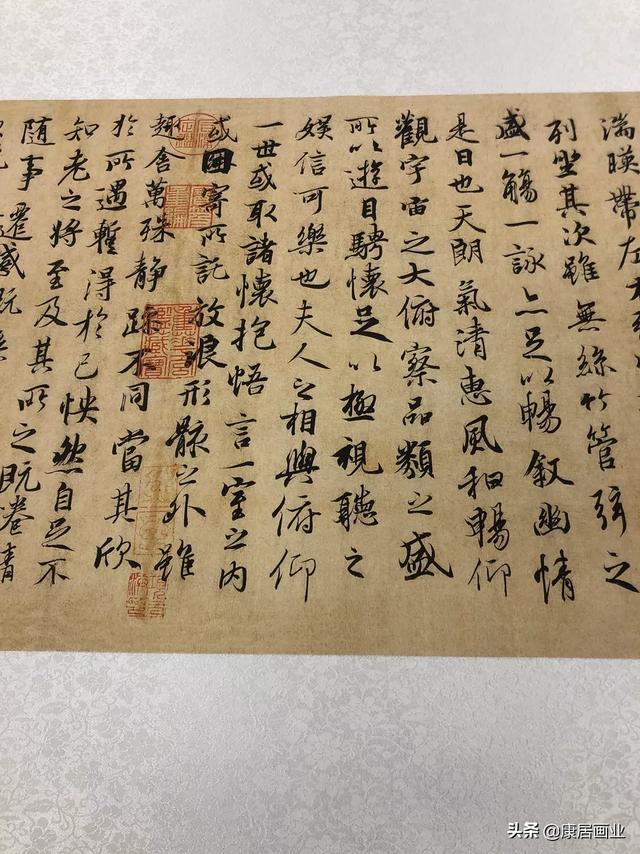 湍暎帶左
列坐其次雖無絲竹管弦之
盛一觴一詠亦足以暢敘幽情
是日也天朗氣清惠風和暢仰
觀宇宙之大俯察品類之盛
所以遊目騁懷足以極視聽之
娛信可樂也夫人之相與俯仰
一世或取諸懷抱悟言一室之內
或因寄所託放浪形骸之外雖
趣舍萬殊靜躁不同當其欣
於所遇暫得於己怏然自足不
知老之將至及其所之既惓情
隨事遷感慨
头条 @康居画业